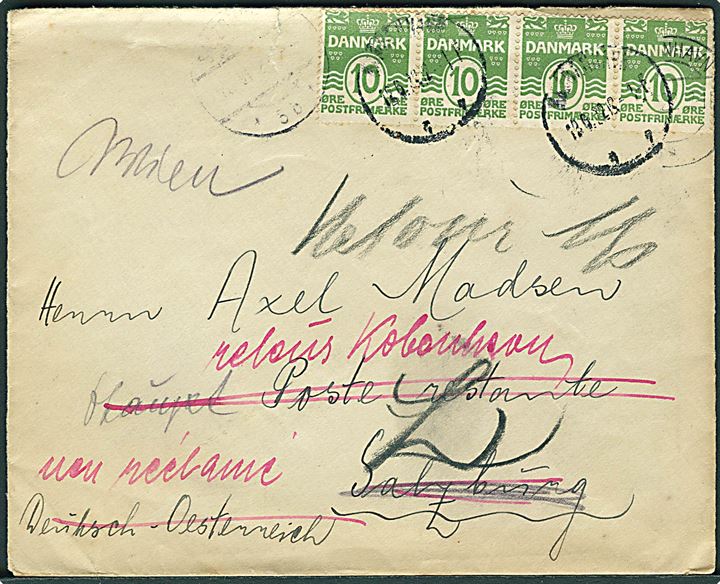 DANMARK DANMARK DANMARK DANMARK
10 10 10 10
ØRE ØRE ØRE ØRE
POSTFRIMÆRKE POSTFRIMÆRKE POSTFRIMÆRKE POSTFRIMÆRKE
Wien
Retour
Herrn Axel Madsen
retour København
Poste restante
non réclamé
Salzburg
Deutsch-Oesterreich